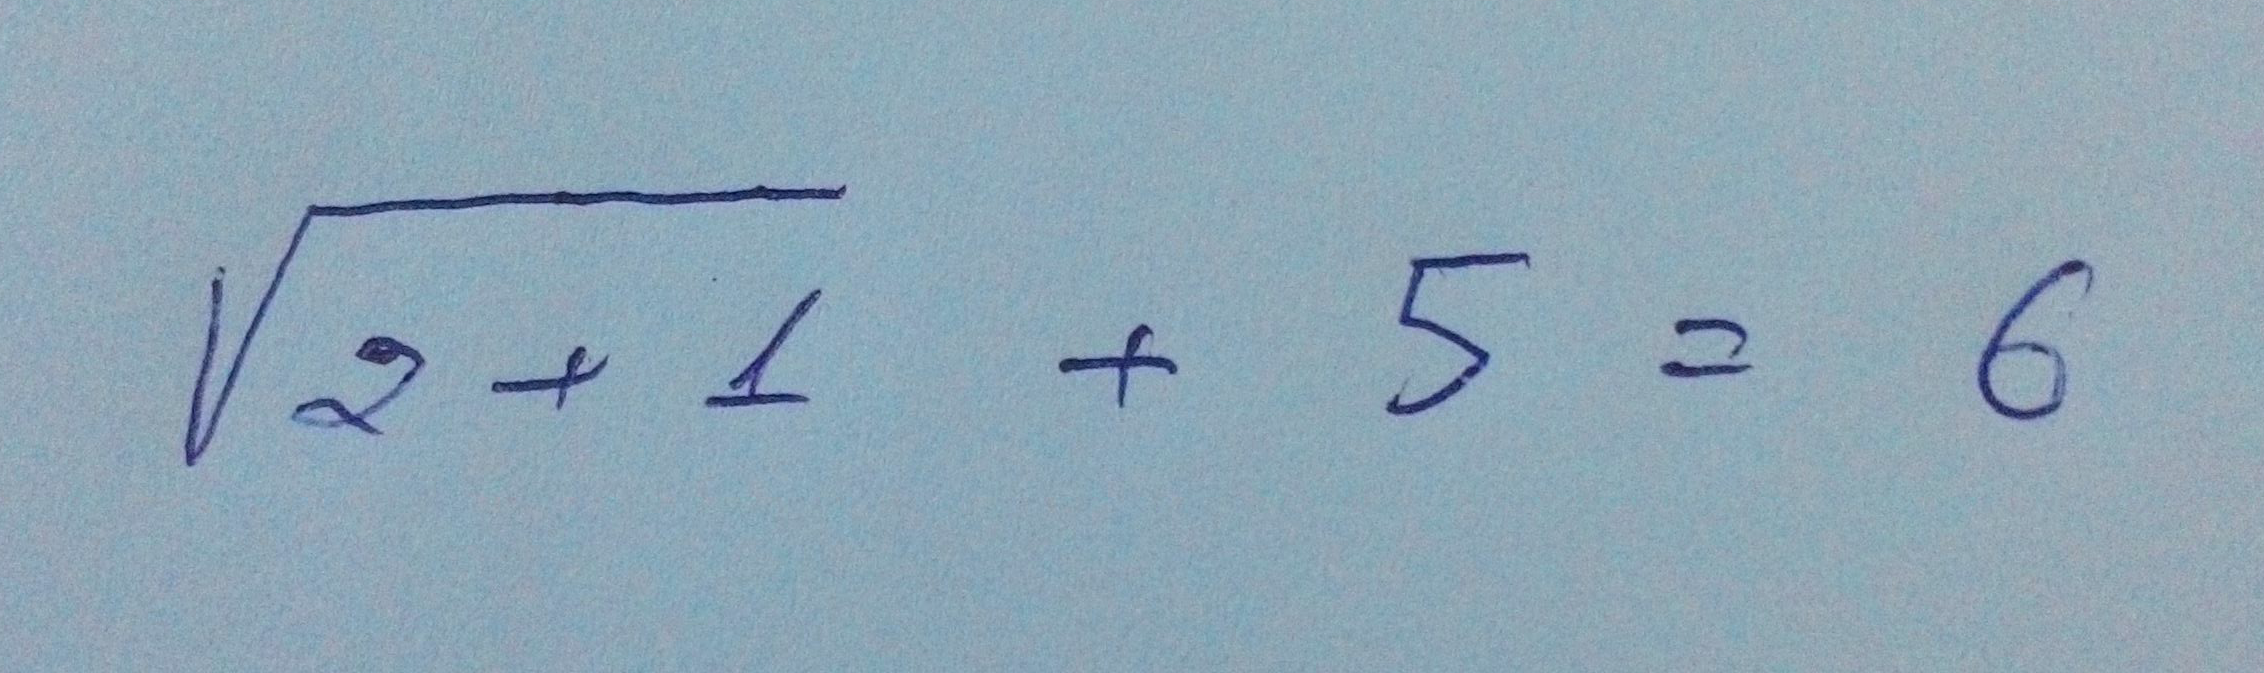 √(2+1) + 5 = 6